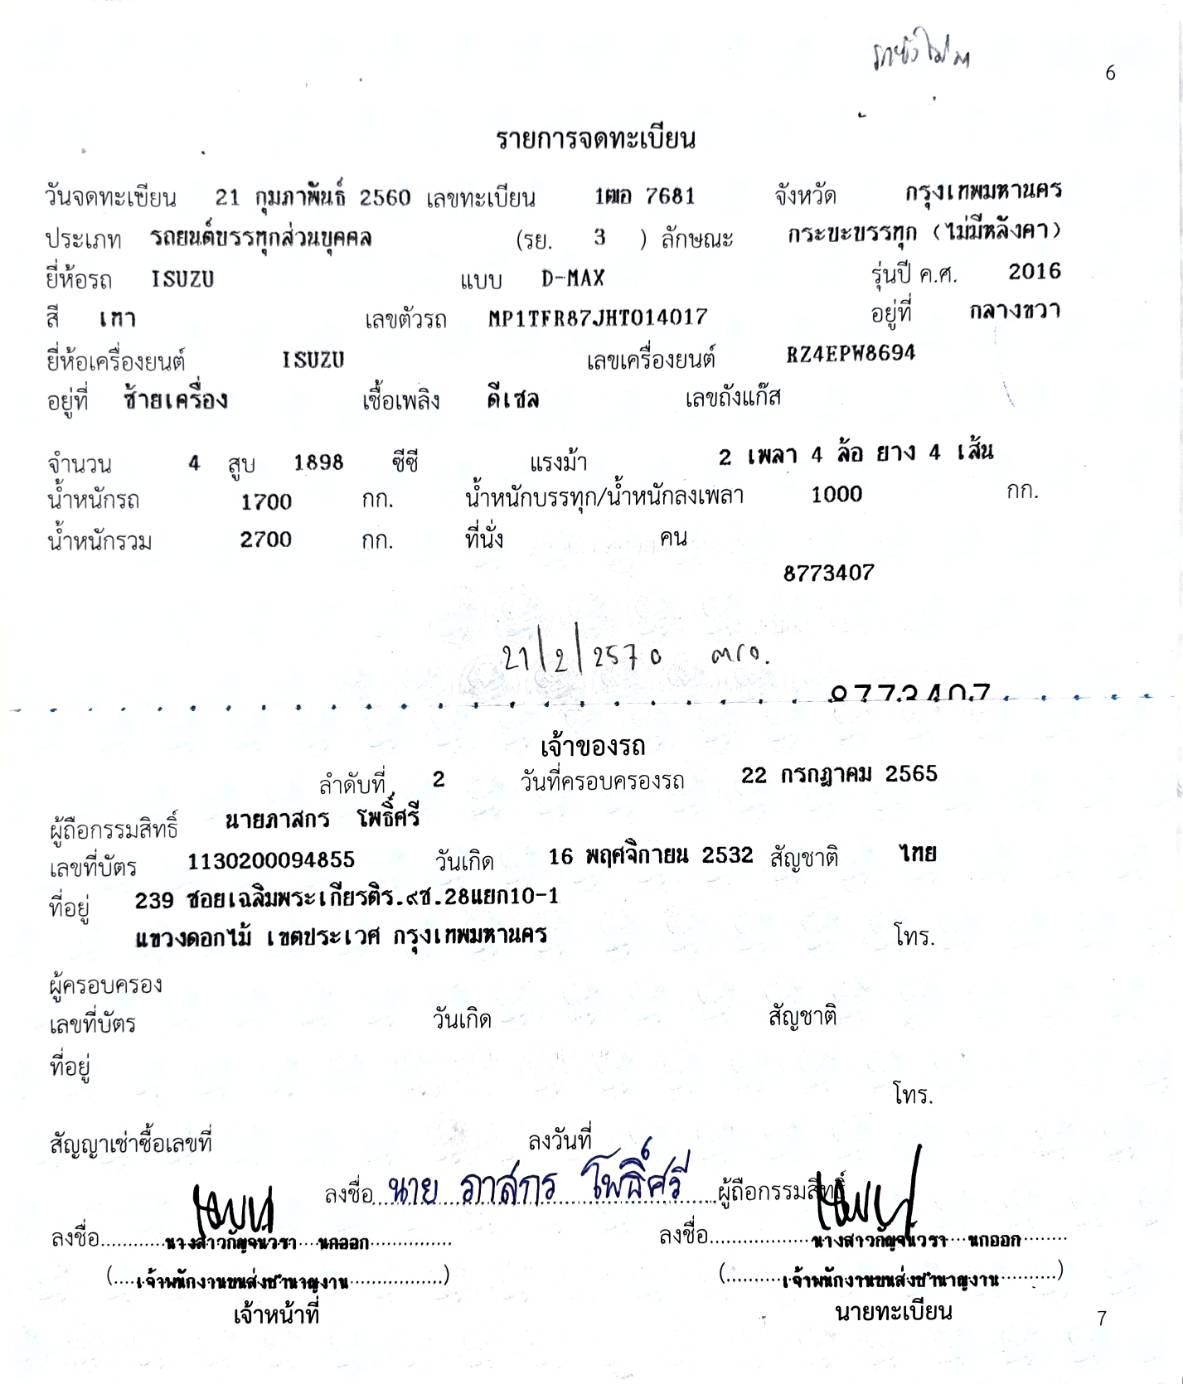 6
รายการจดทะเบียน
วันจดทะเบียน 21 กุมภาพันธ์ 2560 เลขทะเบียน 1ฒอ 7681 จังหวัด กรุงเทพมหานคร
ประเภท รถยนต์บรรทุกส่วนบุคคล (รย. 3 ) ลักษณะ กระบะบรรทุก (ไม่มีหลังคา)
ยี่ห้อรถ ISUZU แบบ D-MAX รุ่นปี ค.ศ. 2016
สี เทา เลขตัวรถ MP1TFR87JHT014017 อยู่ที่ กลางขวา
ยี่ห้อเครื่องยนต์ ISUZU เลขเครื่องยนต์ RZ4EPW8694
อยู่ที่ ซ้ายเครื่อง เชื้อเพลิง ดีเซล เลขถังแก๊ส
จำนวน 4 สูบ 1898 ซีซี แรงม้า 2 เพลา 4 ล้อ ยาง 4 เส้น
น้ำหนักรถ 1700 กก. น้ำหนักบรรทุก/น้ำหนักลงเพลา 1000 กก.
น้ำหนักรวม 2700 กก. ที่นั่ง คน
8773407
21/2/2570
8773407
เจ้าของรถ
ลำดับที่ 2 วันที่ครอบครองรถ 22 กรกฎาคม 2565
ผู้ถือกรรมสิทธิ์ นายภาสกร โพธิ์ศรี
เลขที่บัตร 1130200094855 วันเกิด 16 พฤศจิกายน 2532 สัญชาติ ไทย
ที่อยู่ 239 ซอยเฉลิมพระเกียรติร.๙ซ.28แยก10-1
แขวงดอกไม้ เขตประเวศ กรุงเทพมหานคร โทร.
ผู้ครอบครอง
เลขที่บัตร วันเกิด สัญชาติ
ที่อยู่
โทร.
สัญญาเช่าซื้อเลขที่ ลงวันที่
ลงชื่อ นาย ภาสกร โพธิ์ศรี ผู้ถือกรรมสิทธิ์
ลงชื่อ............นางสาวกัญจน์วรา....นกออก............... ลงชื่อ..................นางสาวกัญจน์วรา....นกออก........
(....เจ้าพนักงานขนส่งชำนาญงาน.................) (..........เจ้าพนักงานขนส่งชำนาญงาน..........)
เจ้าหน้าที่ นายทะเบียน
7